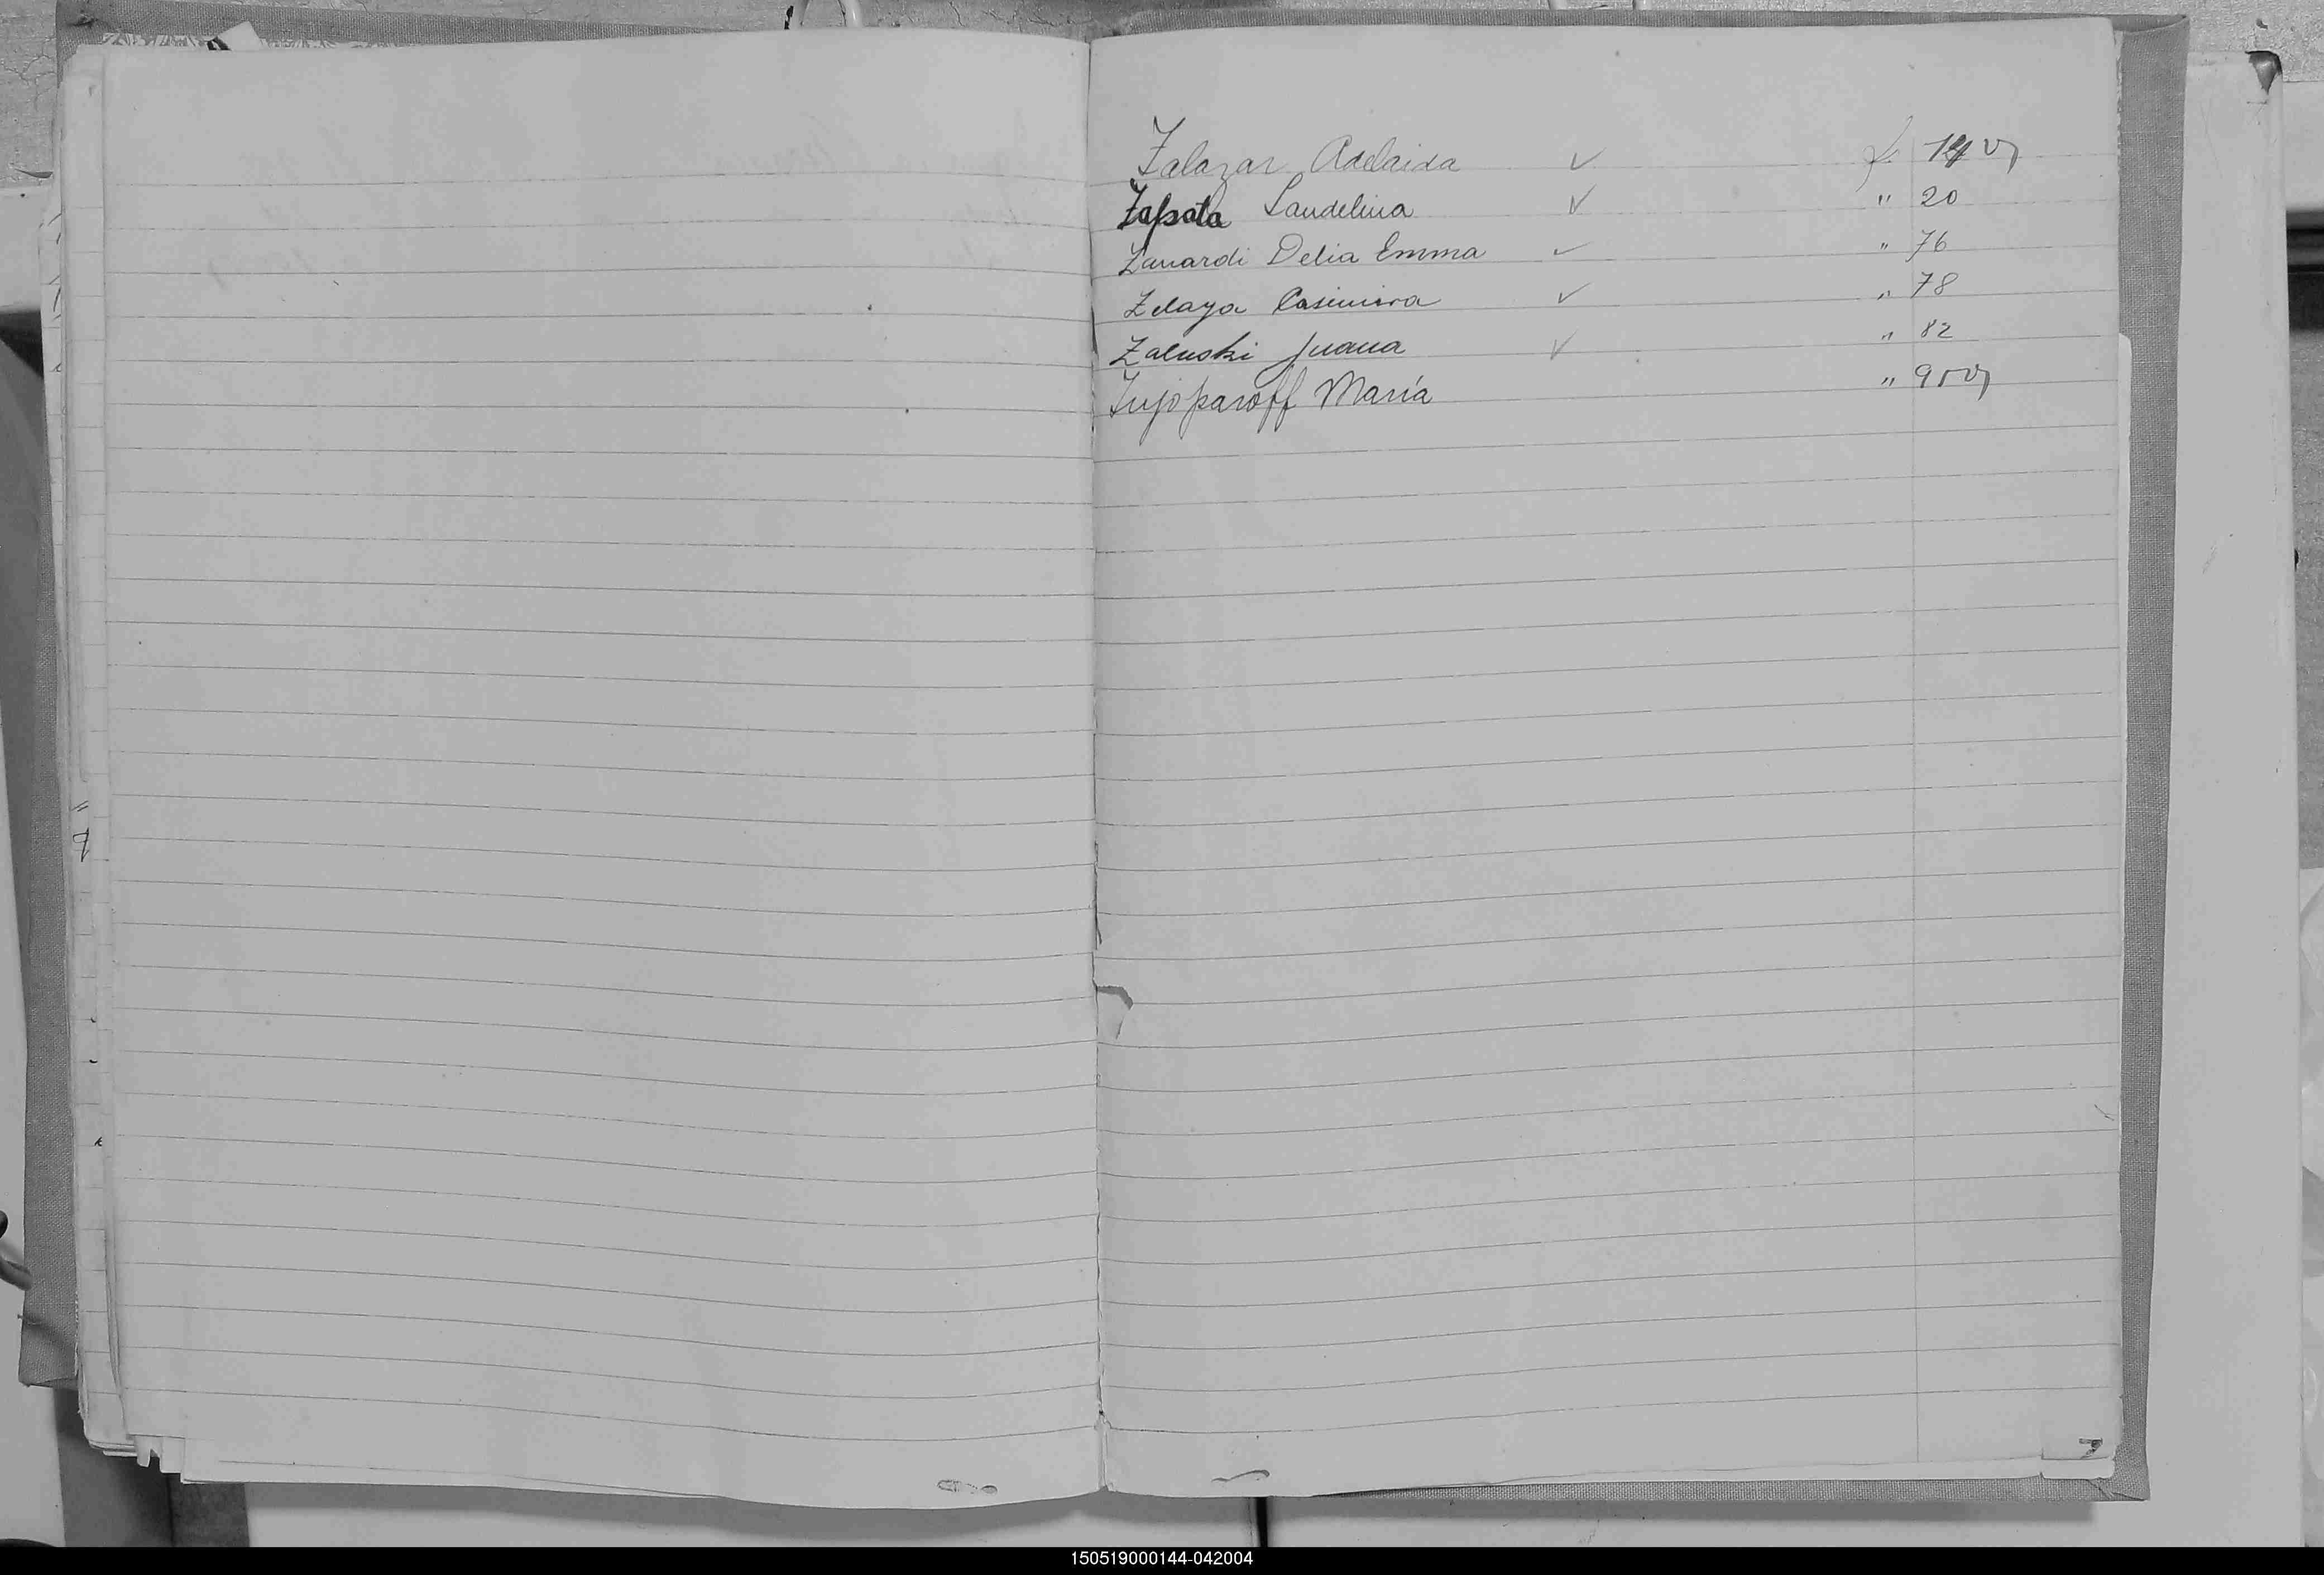 Zalazar Adelaida ✓ f. 14 v
Zapata Laudelina ✓ " 20
Zanardi Delia Emma ✓ " 76
Zelaya Casimira ✓ " 78
Zaluski Juana ✓ " 82
Zujoparoff María " 95 v
Z
150519000144-042004